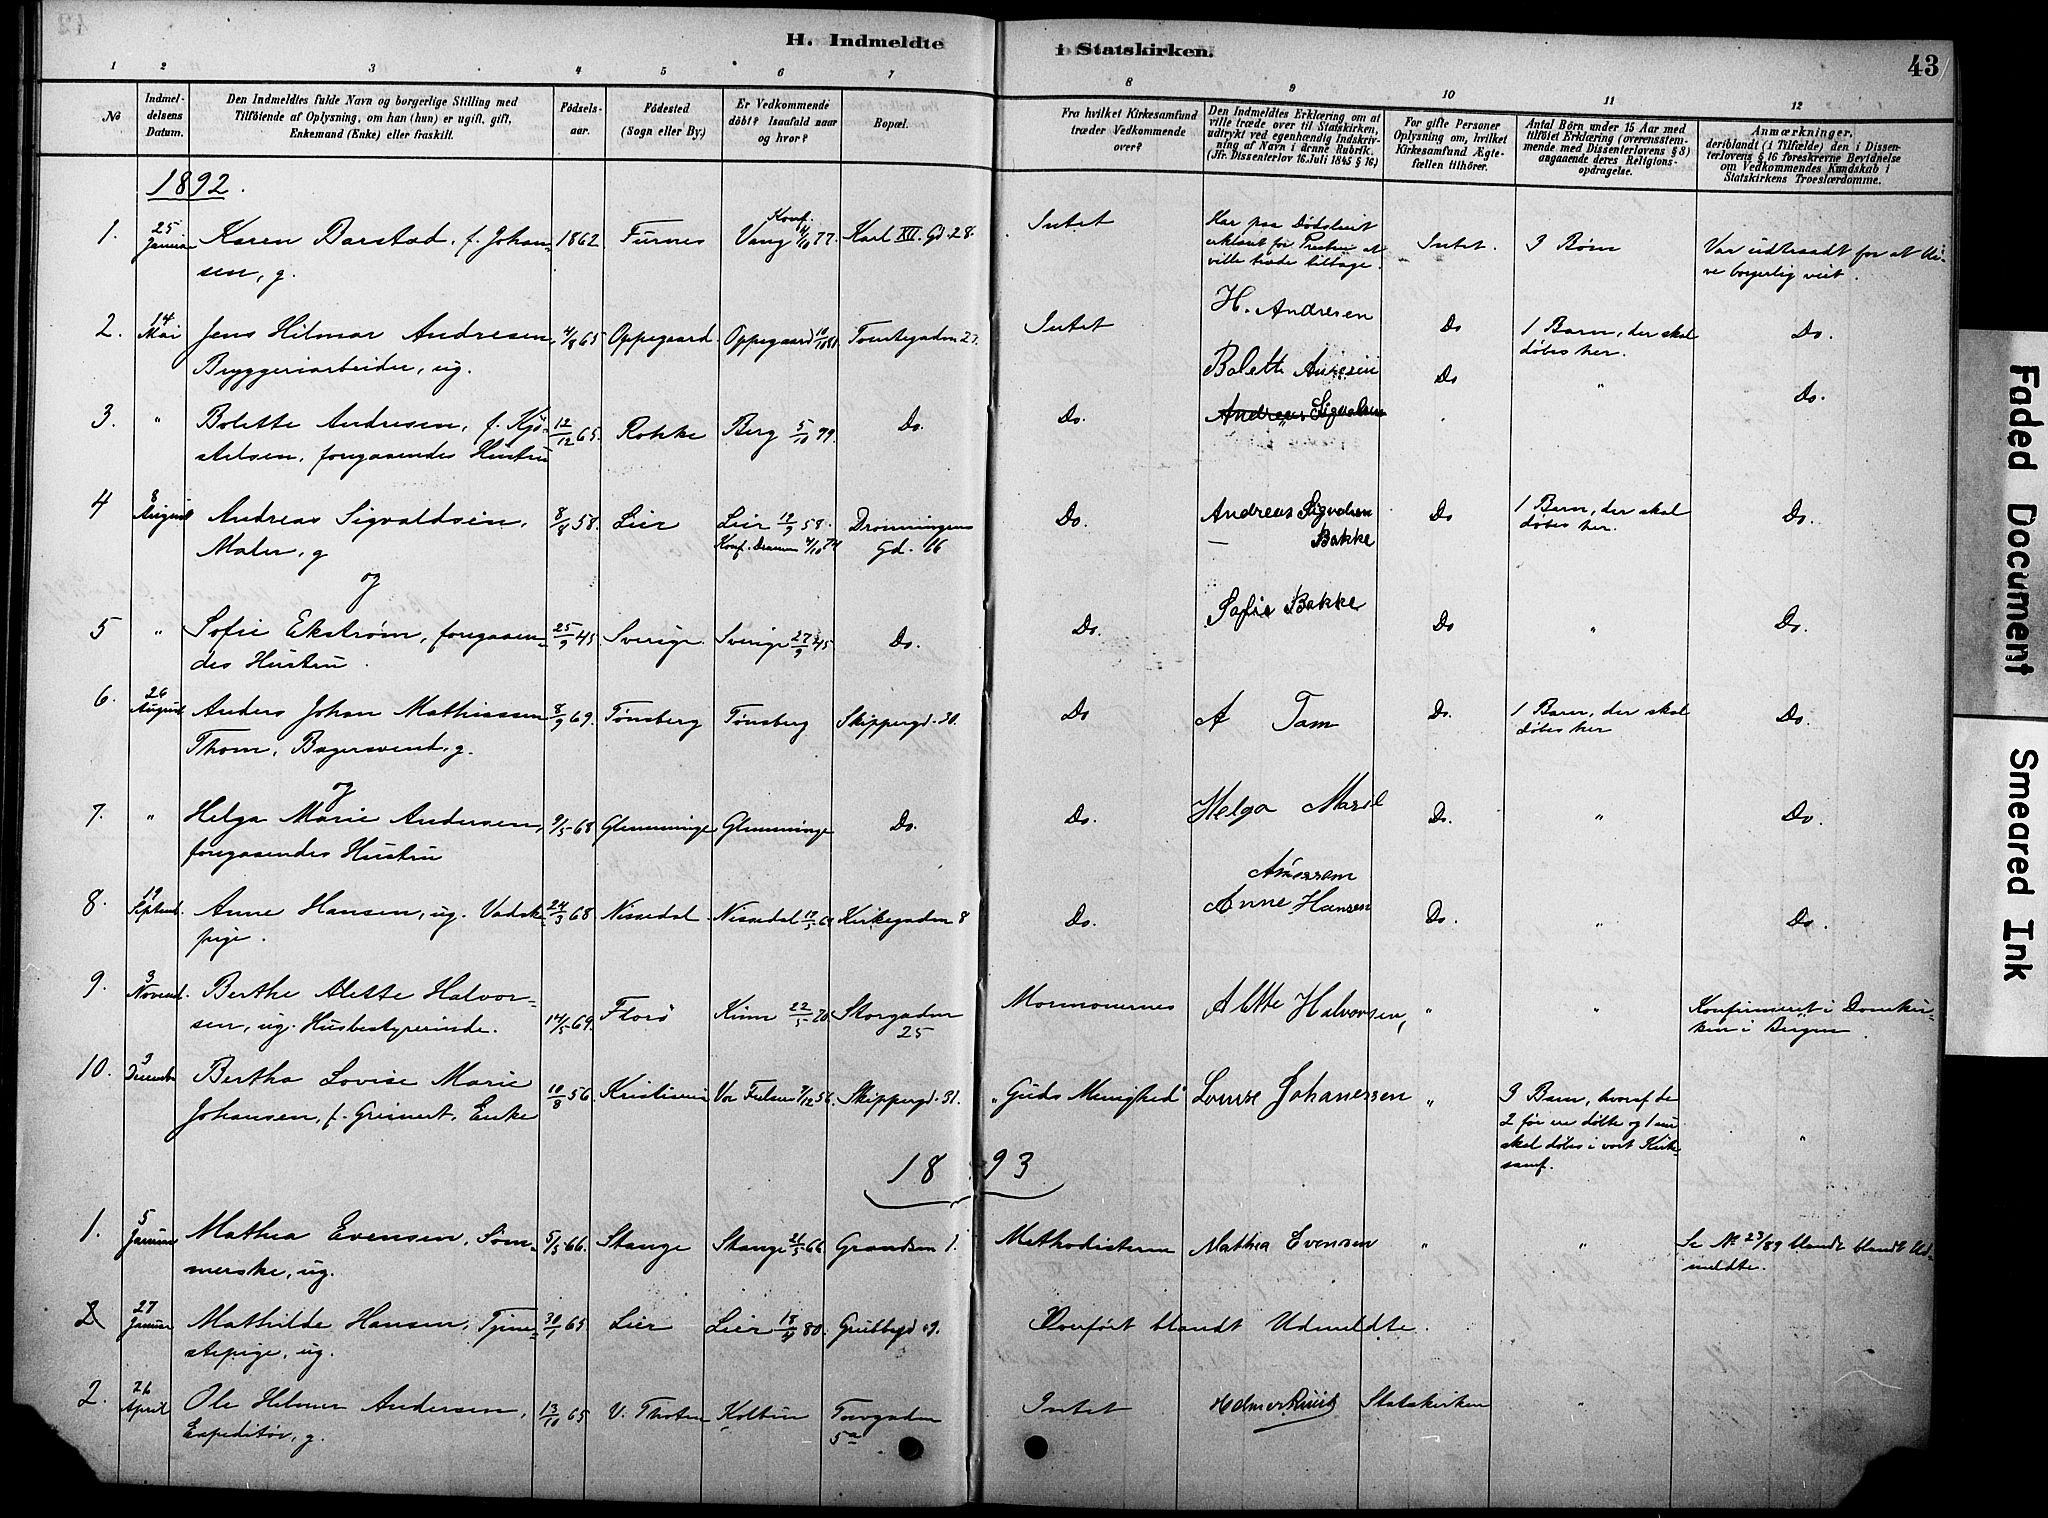 H. Indmeldte i Statskirken.
43
1 2 3 4 5 6 7 8 9 10 11 12
No
Indmel-
delsens
Datum.
Den Indmeldtes fulde Navn og borgerlige Stilling med
Tilföiende af Oplysning, om han (hun) er ugift, gift,
Enkemand (Enke) eller fraskilt.
Födsels-
aar.
Födested
(Sogn eller By.)
Er Vedkommende
döbt? Isaafald naar
og hvor?
Bopæl.
Fra hvilket Kirkesamfund
træder Vedkommende
over?
Den Indmeldtes Erklæring om at
ville træde over til Statskirken,
udtrykt ved egenhændig Indskriv-
ning af Navn i denne Rubrik.
(Jfr. Dissenterlov 16 Juli 1845 § 16)
For gifte Personer
Oplysning om, hvilket
Kirkesamfund Ægte-
fællen tilhörer.
Antal Börn under 15 Aar med
tilföiet Erklæring (overensstem-
mende med Dissenterlovens § 8)
angaaende deres Religions-
opdragelse.
Anmærkninger,
deriblandt (i Tilfælde) den i Dissen-
terlovens § 16 foreskrevne Bevidnelse
om Vedkommendes Kundskab i
Statskirkens Troeslærdomme.
1892.
1. 25 Januar Karen Barstad, f. Johan- 1862 Furnes Vang Konf. 77. Karl XII. Gd. 28. Intet Har paa Dødsleiet Intet. 3 Børn Var udtraadt for at bli-
sen, g. erklæret for Presten at ve borgerlig viet.
ville træde tilbage.
2. 14 Mai Jens Hilmar Andresen, 4/8 65 Oppegaard. Oppegaard Tomtegaden 27. Intet H. Andresen Do 1 Barn, der skal Do.
Bryggeriarbeider, ug. døbes her.
Bolette Do " Do.
3. " Bolette Andresen, f. Kjö- 12/12 65. Rokke Berg 5/10 79. Do. Do. Andreas Sigvaldsen
stelsen, foregaaendes Hustru
4 8 August Andreas Sigvaldsen, 8/8 58. Lier Lier 19/9 58. Dronningens Do. Andreas Do 1 Barn, der skal Do.
Maler, g Konf. 4/10 74 Gd. 16 Bakke døbes her.
og
5 " Sofie Ekstrøm, foregaaen- 25/9 45. Sverige. Sverige 27/9 45 Do. Do. Sofie Bakke Do " Do.
des Hustru.
6. 26 August Anders Johan Mathiassen 8/9 69. Tønsberg Tønsberg Skippergd. 30. Do A Tam Do. 1 Barn, der skal Do.
Thom, Bagersvend, g. døbes her
og
7. " Helga Marie Andersen, 9/5 68 Glemminge Glemminge Do. Do. Helga Do. " Do.
foregaaendes Hustru
8. 19 Septemb. Anne Hansen, ug. Vadske- 24/3 68 Nissedal Nissedal Kirkegaden 8 Do. Anne Hansen Do. " Do.
pige.
9. 3 Novemb. Berthe Alette Halvor- 14/5 69. Florø Kinn 22/5 70. Storgaden Mormonernes Alette Halvorsen, " " Konfirmeret i Domkir-
sen, ug. Husbestyrerinde. 25 ken i Bergen.
10. 3 Decembr Bertha Lovise Marie 10/8 56. Kristiania Vor Frelsers 7/12 56. Skippergd. 31. „Guds Menighed" Louise Johanessen " 3 Barn, hvoraf de "
Johansen, f. Greinert, Enke 2 før ere døbte og 1 nu
skal døbes i vort Kirke-
samf.
1893
1. 5 Januar Mathea Evensen, Søm- 5/5 66. Stange Stange 21/5 66 Grændsen 1. Methodisterne Mathea Evensen " " Se No 23/89 blandt Ud-
merske, ug. meldte.
2 27 Januar Mathilde Hansen, Tjene- 30/1 65 Lier Lier 80. Grubbegd. 9. Overført blandt Udmeldte.
stepige, ug.
2. 26 April Ole Helmer Andersen, 13/10 65 V. Thoten Kolbu Torvgaden Intet Statskirken "
Expeditør, g. 5a
Faded Document
Smeared Ink